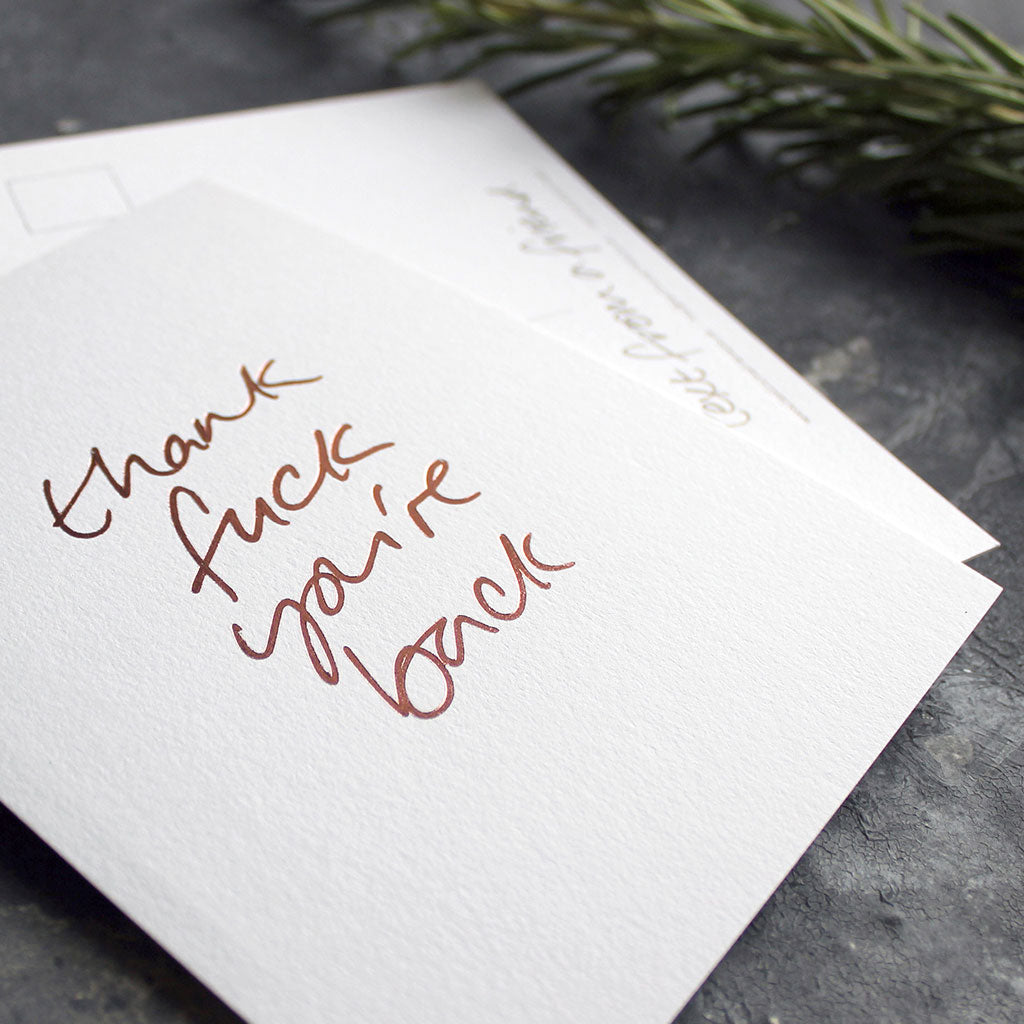 thank
fuck
you're
back
text from a friend